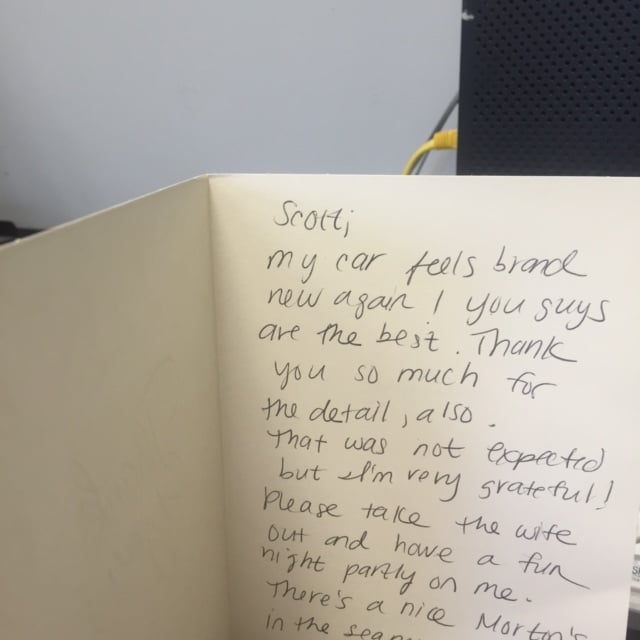 Scott,
my car feels brand
new again! you guys
are the best. Thank
you so much for
the detail, also.
That was not expected
but I'm very grateful!
Please take the wife
out and have a fun
night partly on me.
There's a nice Morton's
in the